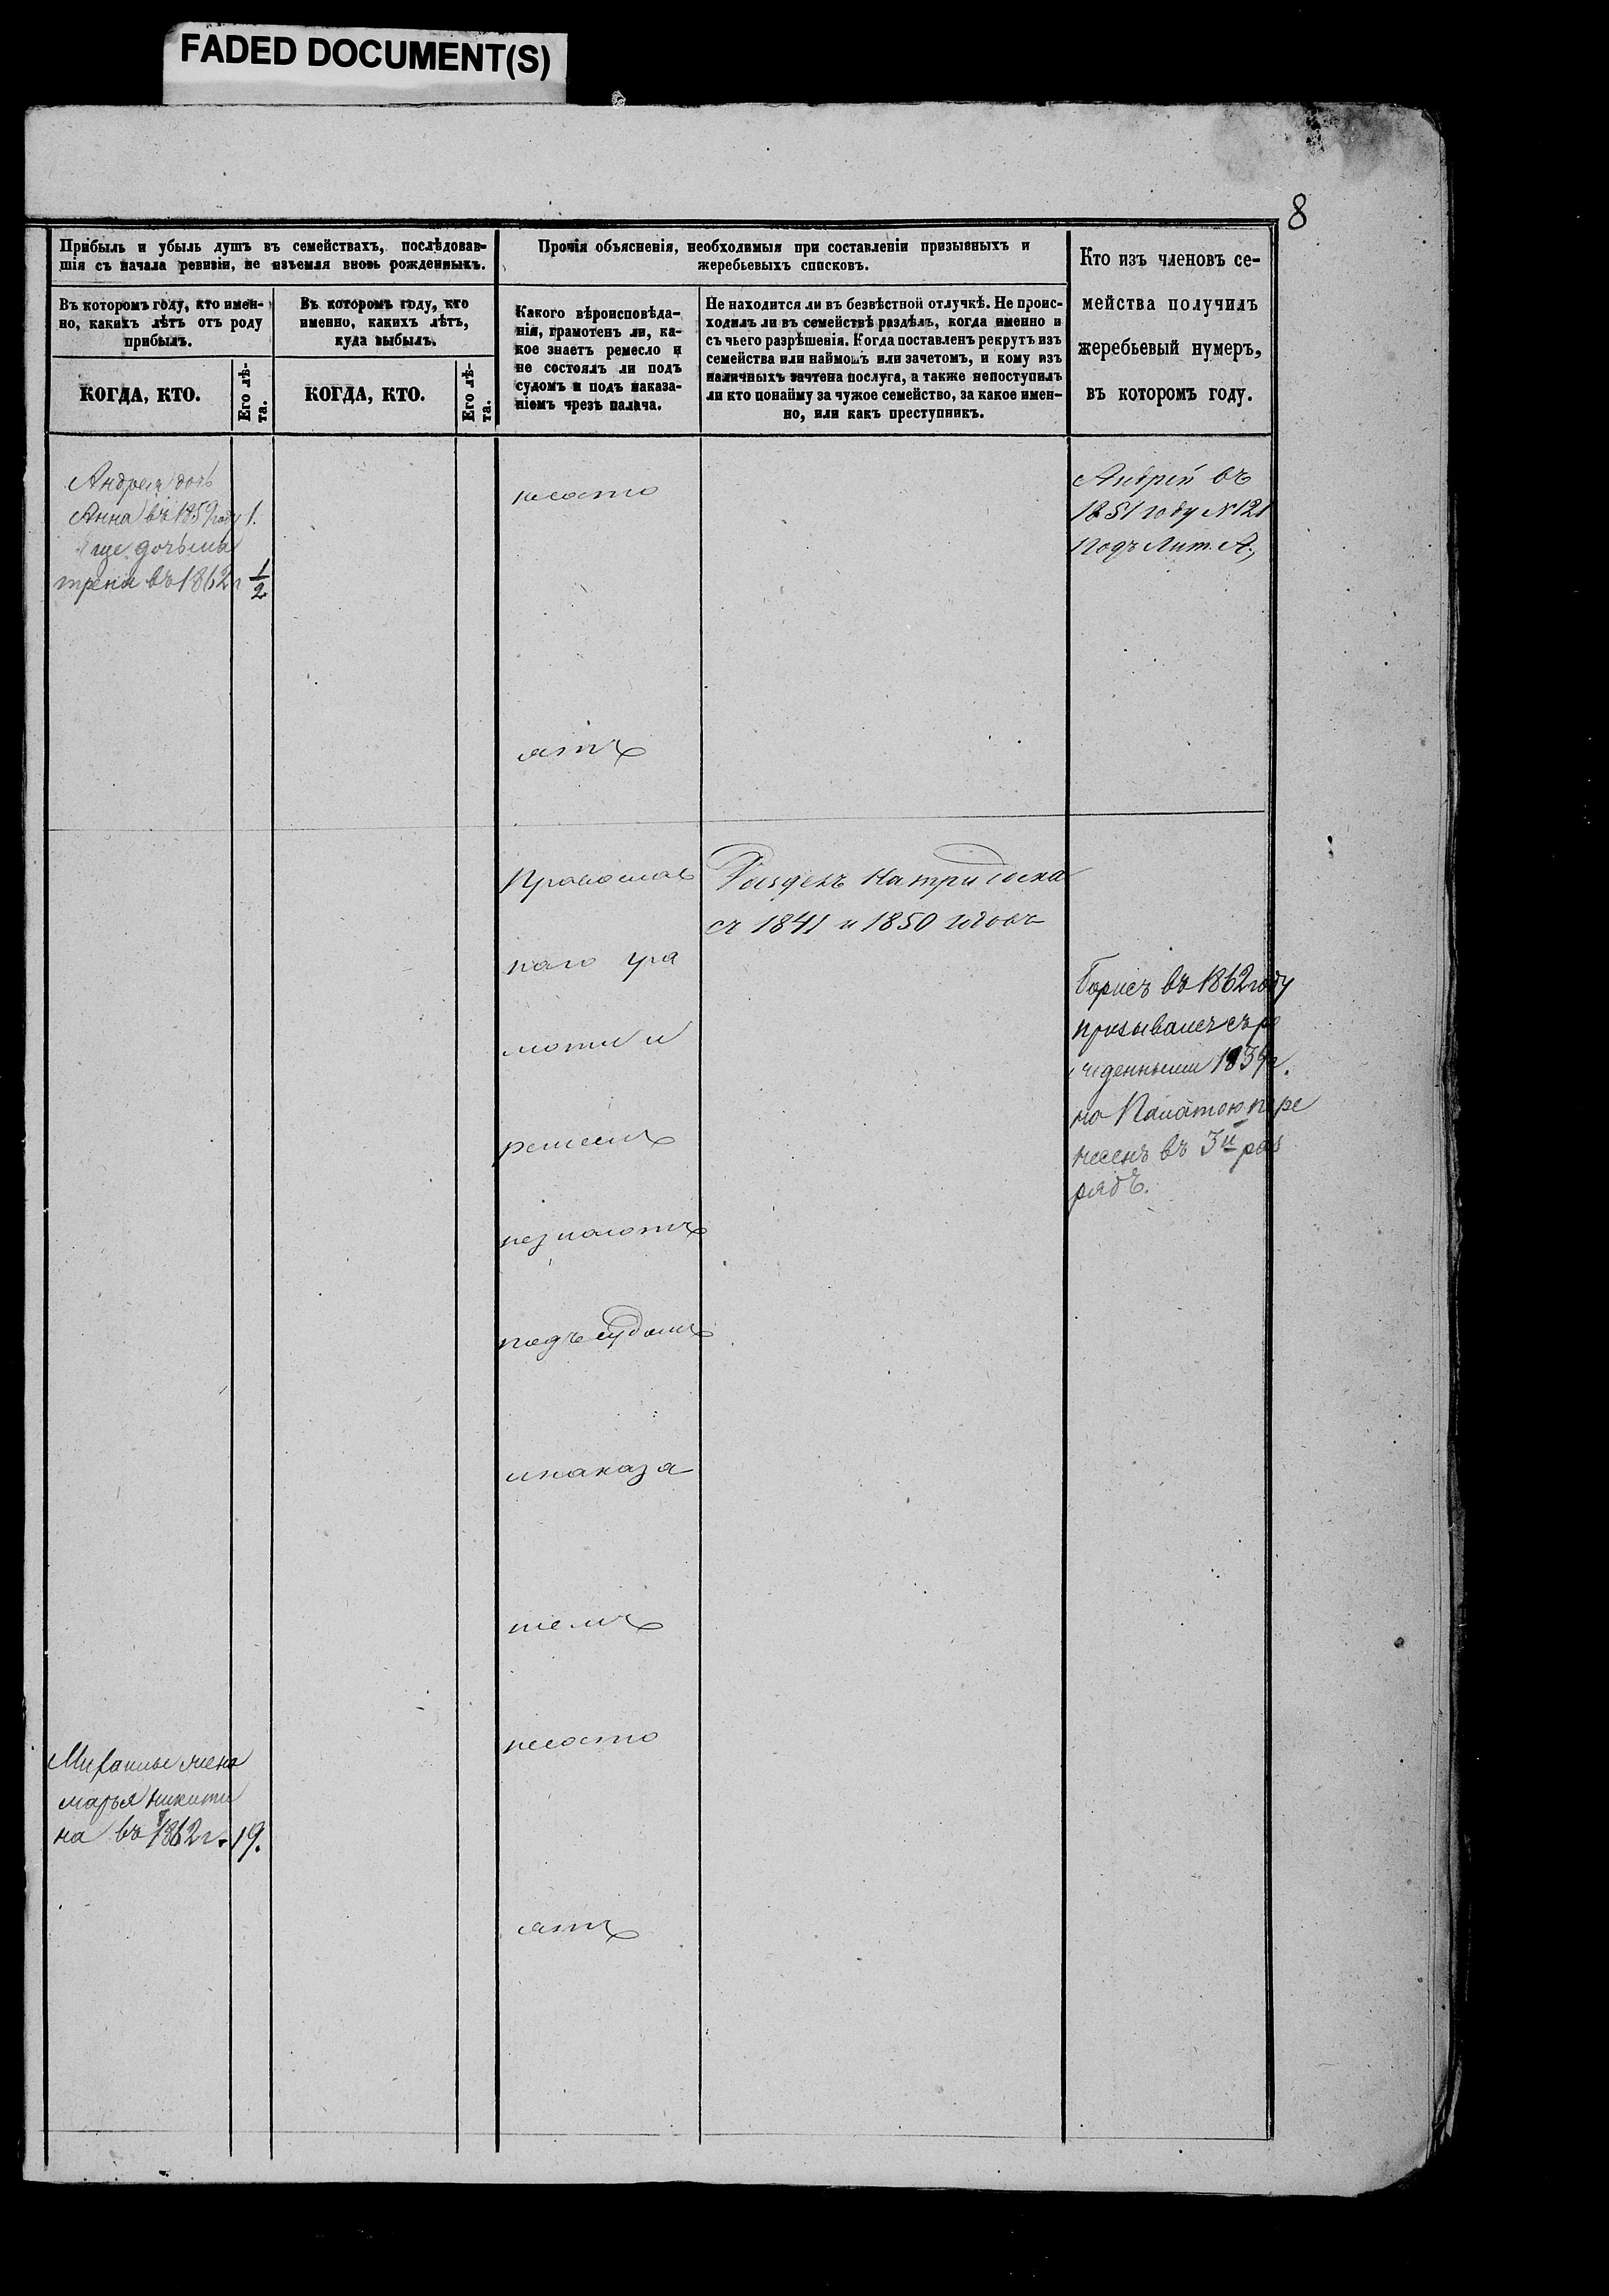 FADED DOCUMENT(S)
8
Прибыль и убыль душъ въ семействахъ, послѣдовав-
шія съ начала ревизіи, не изъемля вновь рожденныхъ.
Прочія объясненія, необходимыя при составленіи призывныхъ и
жеребьевыхъ списковъ.
Кто изъ членовъ се-
мейства получилъ
жеребьевый нумеръ,
въ которомъ году.
Въ которомъ году, кто имен-
но, какихъ лѣтъ отъ роду
прибылъ.
Въ которомъ году, кто
именно, какихъ лѣтъ,
куда выбылъ.
Какого вѣроисповѣда-
нія, грамотенъ ли, ка-
кое знаетъ ремесло и
не состоялъ ли подъ
судомъ и подъ наказа-
ніемъ чрезъ палача.
Не находится ли въ безвѣстной отлучкѣ. Не проис-
ходилъ ли въ семействѣ раздѣлъ, когда именно и
съ чьего разрѣшенія. Когда поставленъ рекрутъ изъ
семейства или наймомъ или зачетомъ, и кому изъ
наличныхъ зачтена послуга, а также непоступилъ
ли кто понайму за чужое семейство, за какое имен-
но, или какъ преступникъ.
КОГДА, КТО.
Его лѣ-
та.
КОГДА, КТО.
Его лѣ-
та.
Андрея дочь
Анна въ 1859 году 1.
Еще дочь Ма
трена въ 1862 г 1/2
несосто
ятъ
Андрей въ
1851 году № 121
подъ Лит. А.,
Православ
наго гра
моти и
ремеслъ
незнаютъ
подъ судомъ
инаказа
ніемъ
несосто
ятъ
Раздѣлъ на три
съ 1841 и 1850 годовъ
Борисъ въ 1862 году
призывался съ ро
жденными
но Палатою пере
несенъ въ 3й раз
рядъ.
жена
марья никити
на въ 1862 г. 19.